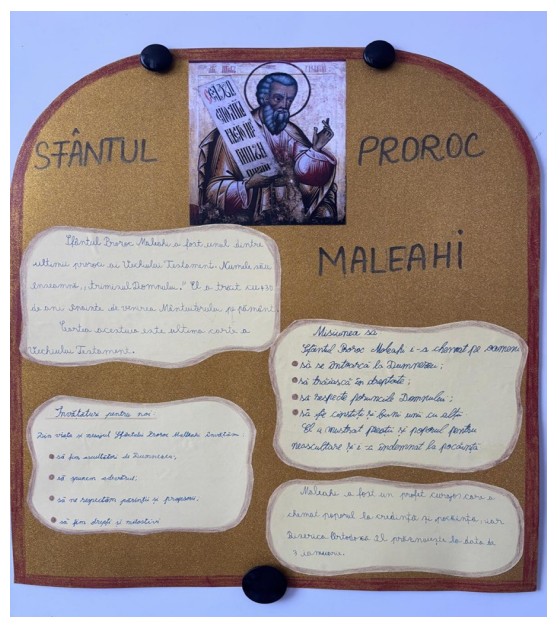 SFÂNTUL
PROROC
MALEAHI
Sfântul Proroc Maleahi a fost unul dintre
ultimii proroci ai Vechiului Testament. Numele său
înseamnă „trimisul Domnului." El a trăit cu 430
de ani înainte de venirea Mântuitorului pe pământ.
Cartea acestuia este ultima carte a
Vechiului Testament.
Misiunea sa
Sfântul Proroc Maleahi i-a chemat pe oameni
să se întoarcă la Dumnezeu;
să trăiască în dreptate;
să respecte poruncile Domnului;
să fie cinstiți și buni unii cu alții.
El a mustrat preoții și poporul pentru
neascultare și i-a îndemnat la pocăință.
Învățături pentru noi:
Din viața și mesajul Sfântului Proroc Maleahi învățăm:
să fim ascultători de Dumnezeu;
să spunem adevărul;
să ne respectăm părinții și profesorii;
să fim drepți și milostivi
Maleahi a fost un profet curajos care a
chemat poporul la credință și pocăință, iar
Biserica Ortodoxă îl prăznuiește la data de
3 ianuarie.